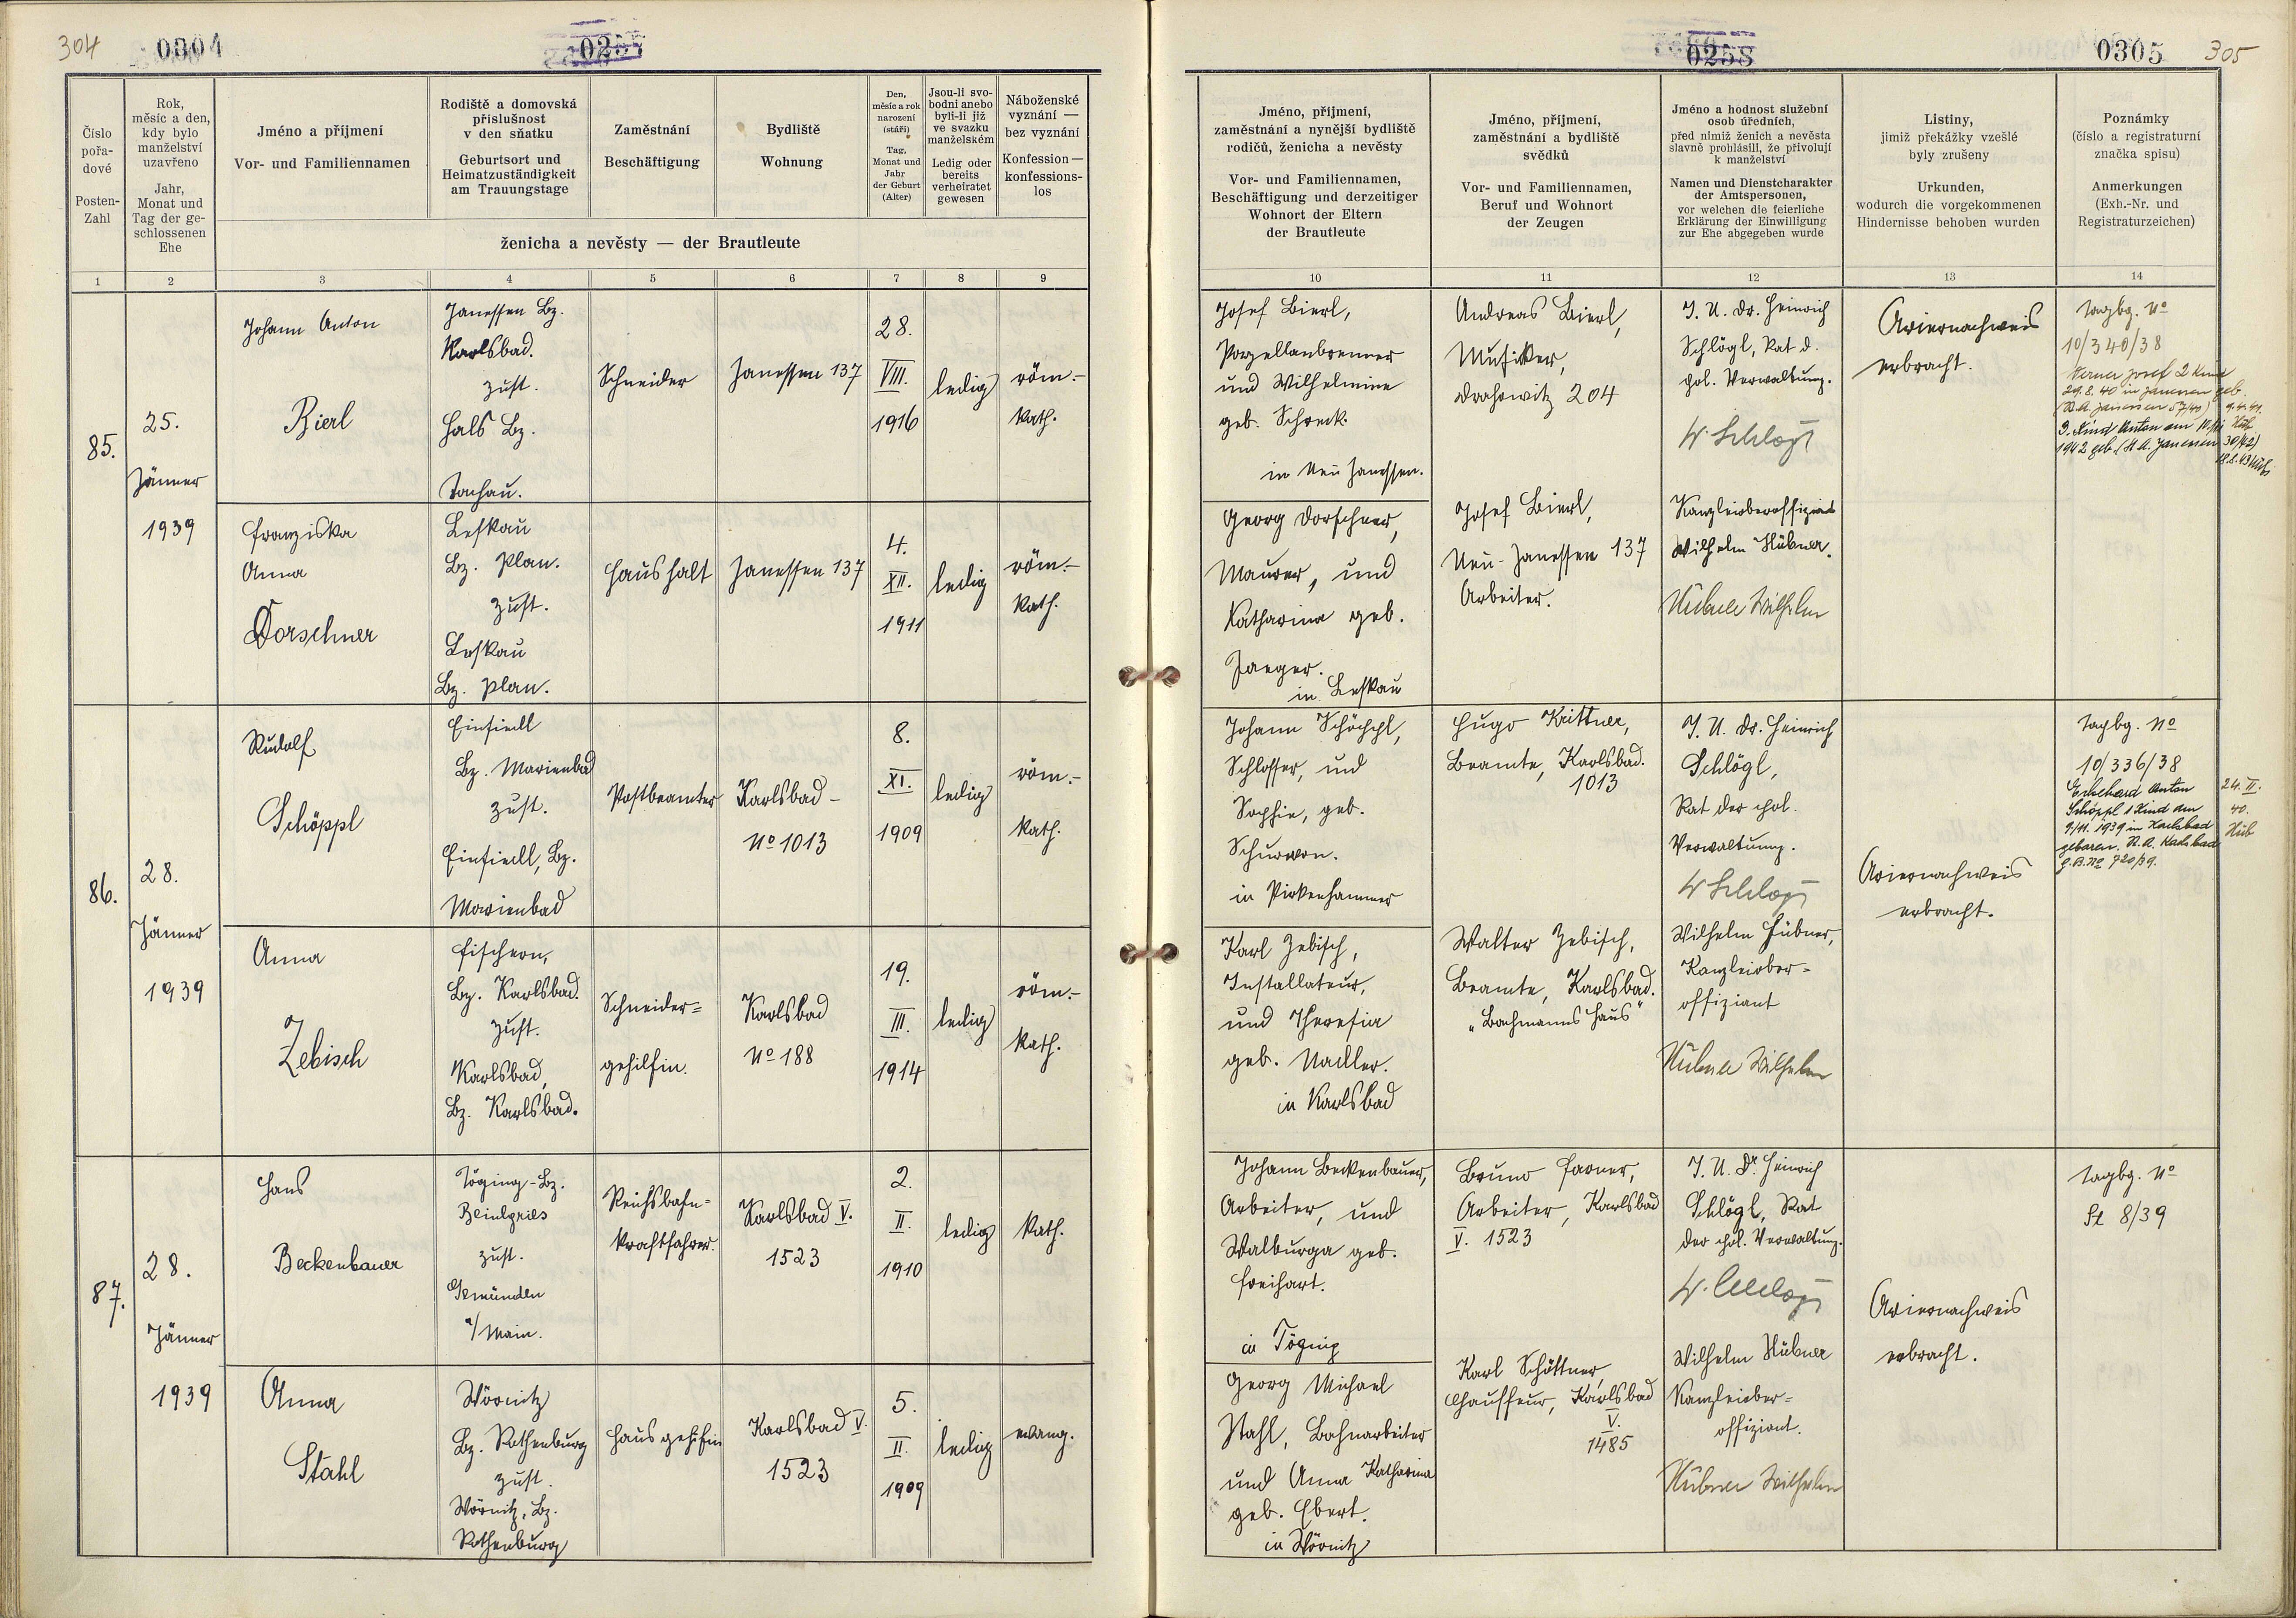 304
0304
0257
Číslo pořa- dové
Posten- Zahl
Rok, měsíc a den, kdy bylo manželství uzavřeno
Jahr, Monat und Tag der ge- schlossenen Ehe
Jméno a příjmení
Vor- und Familiennamen
Rodiště a domovská příslušnost v den sňatku
Geburtsort und Heimatzuständigkeit am Trauungstage
Zaměstnání
Beschäftigung
Bydliště
Wohnung
Den, měsíc a rok narození (stáří)
Tag, Monat und Jahr der Geburt (Alter)
Jsou-li svo- bodni anebo byli-li již ve svazku manželském
Ledig oder bereits verheiratet gewesen
Náboženské vyznání — bez vyznání
Konfession — konfessions- los
ženicha a nevěsty — der Brautleute
1 2 3 4 5 6 7 8 9
85.
25.
Jänner
1939
Johann Anton
Bierl
Janessen Bz.
Karlsbad.
zust.
Hals Bz.
Tachau.
Schneider
Janessen 137
28.
VIII.
1916
ledig
röm.-
kath.
Franziska
Anna
Dorschner
Leskau
Bz. Plan.
zust.
Leskau
Bz. Plan.
Haushalt
Janessen 137
4.
XII.
1911
ledig
röm.-
kath.
86.
28.
Jänner
1939
Rudolf
Schöppl
Einsiedl
Bz. Marienbad
zust.
Einsiedl, Bz.
Marienbad
Postbeamter
Karlsbad –
No 1013
8.
XI.
1909
ledig
röm.-
kath.
Anna
Zebisch
Fischern,
Bz. Karlsbad.
zust.
Karlsbad,
Bz. Karlsbad.
Schneider=
gehilfin.
Karlsbad
No 188
19.
III.
1914
ledig
röm.-
kath.
87.
28.
Jänner
1939
Hans
Beckenbauer
Töging - Bz.
Beilngries
zust.
Gemünden
a/Main.
Reichsbahn=
kraftfahrer.
Karlsbad V.
1523
2.
II.
1910
ledig
kath.
Anna
Stahl
Wörnitz
Bz. Rothenburg
zust.
Wörnitz, Bz.
Rothenburg
Hausgehilfin
Karlsbad V.
1523
5.
II.
1909
ledig
evang.
0258
0305
305
Jméno, příjmení, zaměstnání a nynější bydliště rodičů, ženicha a nevěsty
Vor- und Familiennamen, Beschäftigung und derzeitiger Wohnort der Eltern der Brautleute
Jméno, příjmení, zaměstnání a bydliště svědků
Vor- und Familiennamen, Beruf und Wohnort der Zeugen
Jméno a hodnost služební osob úředních, před nimiž ženich a nevěsta slavně prohlásili, že přivolují k manželství
Namen und Dienstcharakter der Amtspersonen, vor welchen die feierliche Erklärung der Einwilligung zur Ehe abgegeben wurde
Listiny, jimiž překážky vzešlé byly zrušeny
Urkunden, wodurch die vorgekommenen Hindernisse behoben wurden
Poznámky (číslo a registraturní značka spisu)
Anmerkungen (Exh.-Nr. und Registraturzeichen)
10 11 12 13 14
Josef Bierl,
Porzellanbrenner
und Wilhelmine
geb. Schreck.
in Neu Janessen.
Andreas Bierl,
Musiker,
Drahowitz 204
J. U. Dr. Heinrich
Schlögl, Rat d.
pol. Verwaltung.
Ariernachweis
erbracht.
Tagbg. No
10/340/38
Georg Dorschner,
Maurer, und
Katharina geb.
Jaeger.
in Leskau
Josef Bierl,
Neu-Janessen 137
Arbeiter.
Kanzleioberoffiziant
Wilhelm Hübner.
Hübner Wilhelm
Johann Schöppl,
Schlosser, und
Sophie, geb.
in Pirkenhammer
Hugo Krittner,
Beamte, Karlsbad.
1013
J. U. Dr. Heinrich
Schlögl,
Rat der pol.
Verwaltung.
Ariernachweis
erbracht.
Tagbg. No
10/336/38
Ekkehard Anton
Schöppl 1 Kind am
9/11. 1939 in Karlsbad
geboren. St. A. Karlsbad
G.B.No 720/39.
24. II.
40.
Hüb
Karl Zebisch,
Installateur,
und Theresia
geb. Nadler.
in Karlsbad
Walter Zebisch,
Beamte, Karlsbad.
"Bachmanns Haus"
Wilhelm Hübner,
Kanzleiober=
offiziant
Hübner Wilhelm
Johann Beckenbauer,
Arbeiter, und
Walburga geb.
Freihart.
in Töging
Bruno Farner,
Arbeiter, Karlsbad
V. 1523
J. U. Dr. Heinrich
Schlögl, Rat
der pol. Verwaltung.
Ariernachweis
erbracht.
Tagbg. No
St 8/39
Georg Michael
Stahl, Bahnarbeiter
und Anna Katharina
geb. Ebert.
in Wörnitz
Karl Schöttner,
Chauffeur, Karlsbad
V.
1485
Wilhelm Hübner
Kanzleiober=
offiziant.
Hübner Wilhelm